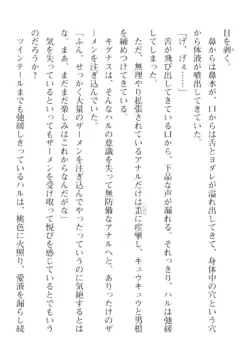 目を剥く。
「げ、げぇ……」
鼻からは鼻水が、口からは舌とヨダレが溢れ出してきて、身体中の穴という穴
から体液が噴出してきて、
舌が飛び出してきている口から、下品な声が漏れる。それっきり、ハルは弛緩
してしまった。
ただ、無理やり拡張されているアナルだけは歪に痙攣し、キュウキュウと男根
を締めつけてきている。
キグナスは、そんなハルの意識を失って無防備なアナルへと、ありったけのザ
ーメンを注ぎ込んでいた。
「ふん、せっかく大量のザーメンを注ぎ込んでやったっていうのに気絶するとは
な。まあ、まだまだ楽しみはこれからなんだがな」
気を失っているというのにザーメンを受け取って悦びを感じているとでもいう
のだろうか？
ツインテールまでも弛緩しきっているハルは、桃色に火照り、愛液を漏らし続